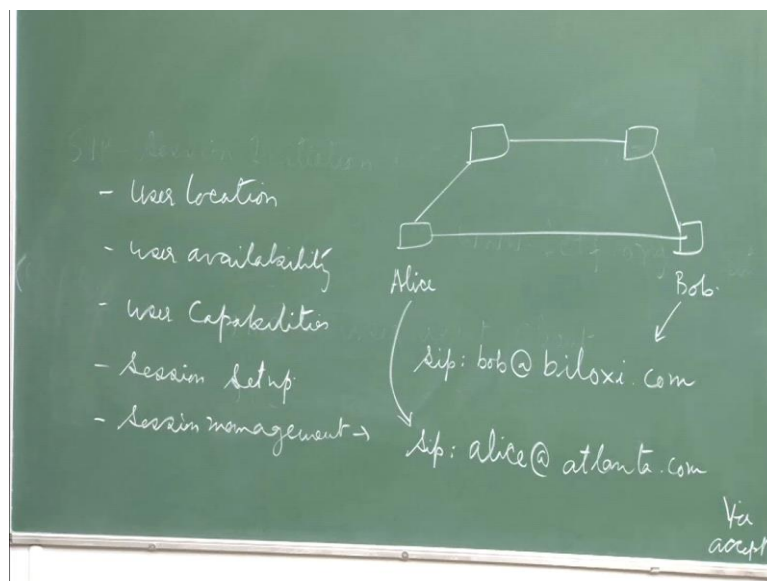 - User location
- user availability
- User Capabilities
- Session Setup.
- Session management →
Alice
Bob.
sip: bob@biloxi.com
sip: alice@atlanta.com
Via
accept